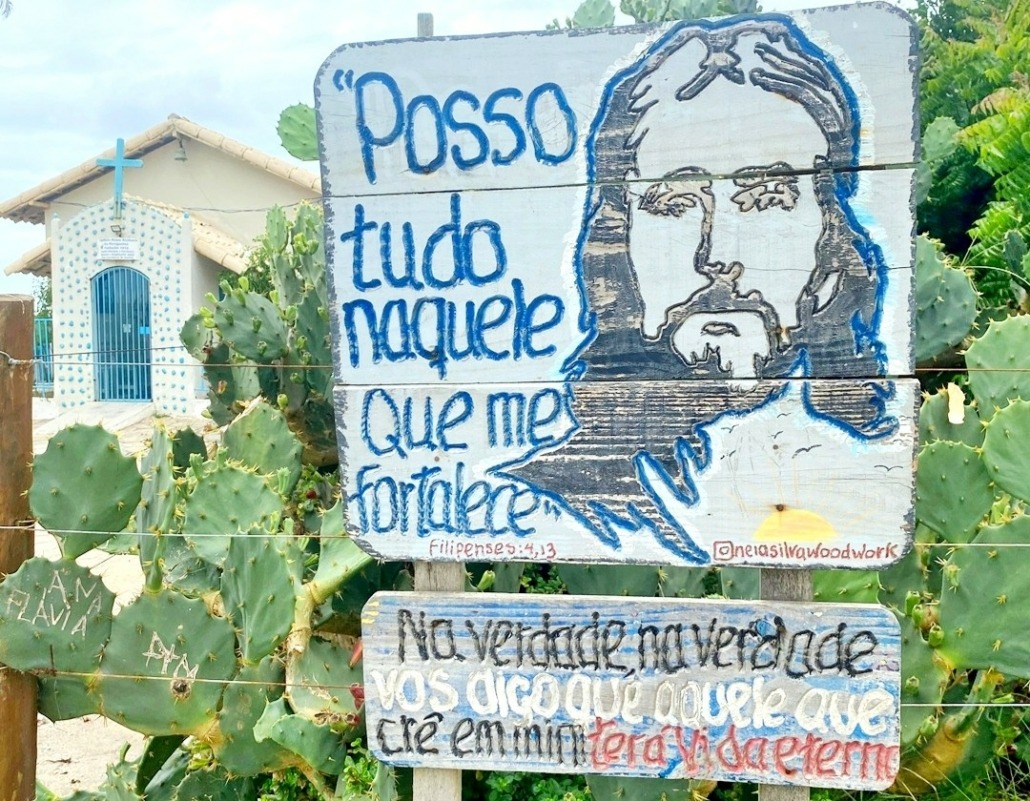 "Posso
tudo
naquele
que me
fortalece"
Filipenses:4,13
@neiasilvawoodwork
Na verdade, na verdade
vos digo que aquele que
crê em mim terá vida eterna
AM
FLÁVIA